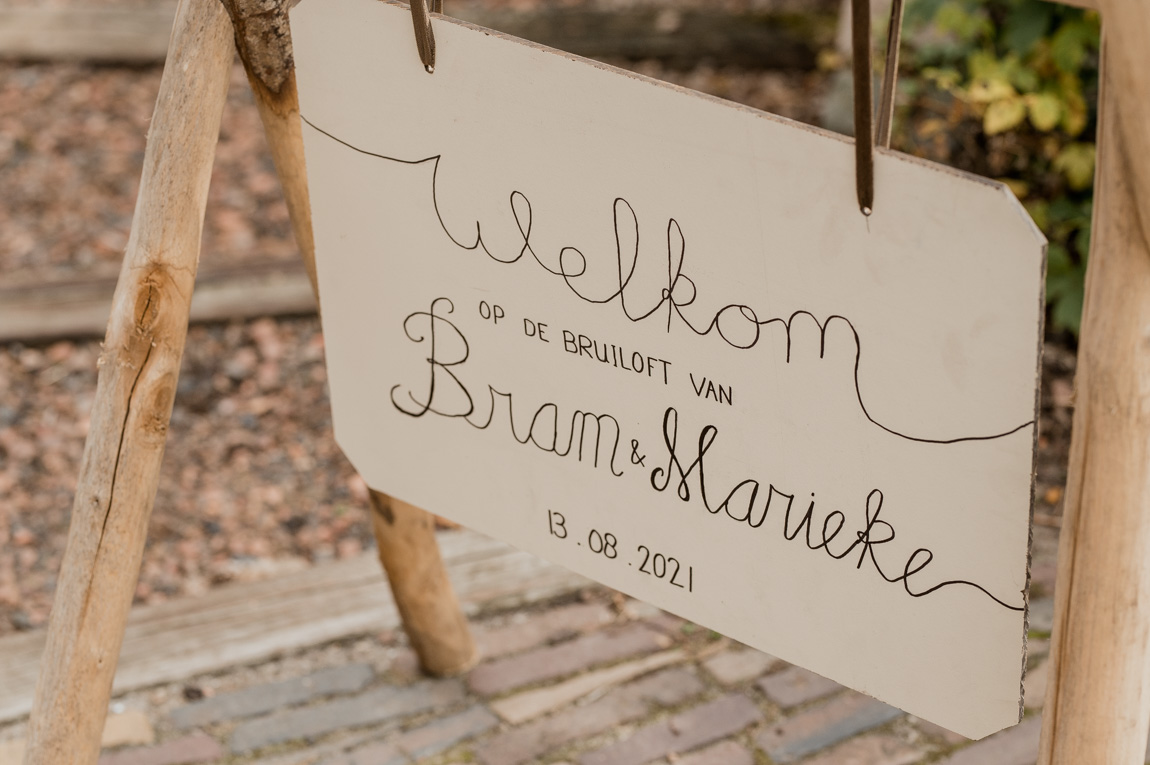 Welkom
OP DE BRUILOFT VAN
Bram & Marieke
13.08.2021